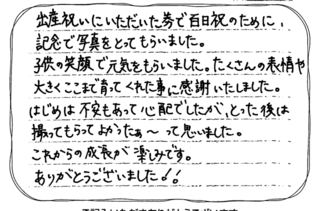 出産祝いにいただいた券で百日祝のために、
記念で写真をとってもらいました。
子供の笑顔で元気をもらいました。たくさんの表情や
大きくここまで育ってくれた事に感謝いたしました。
はじめは不安もあって心配でしたが、とった後は
撮ってもらってよかったぁ〜って思いました。
これからの成長が楽しみです。
ありがとうございました!!